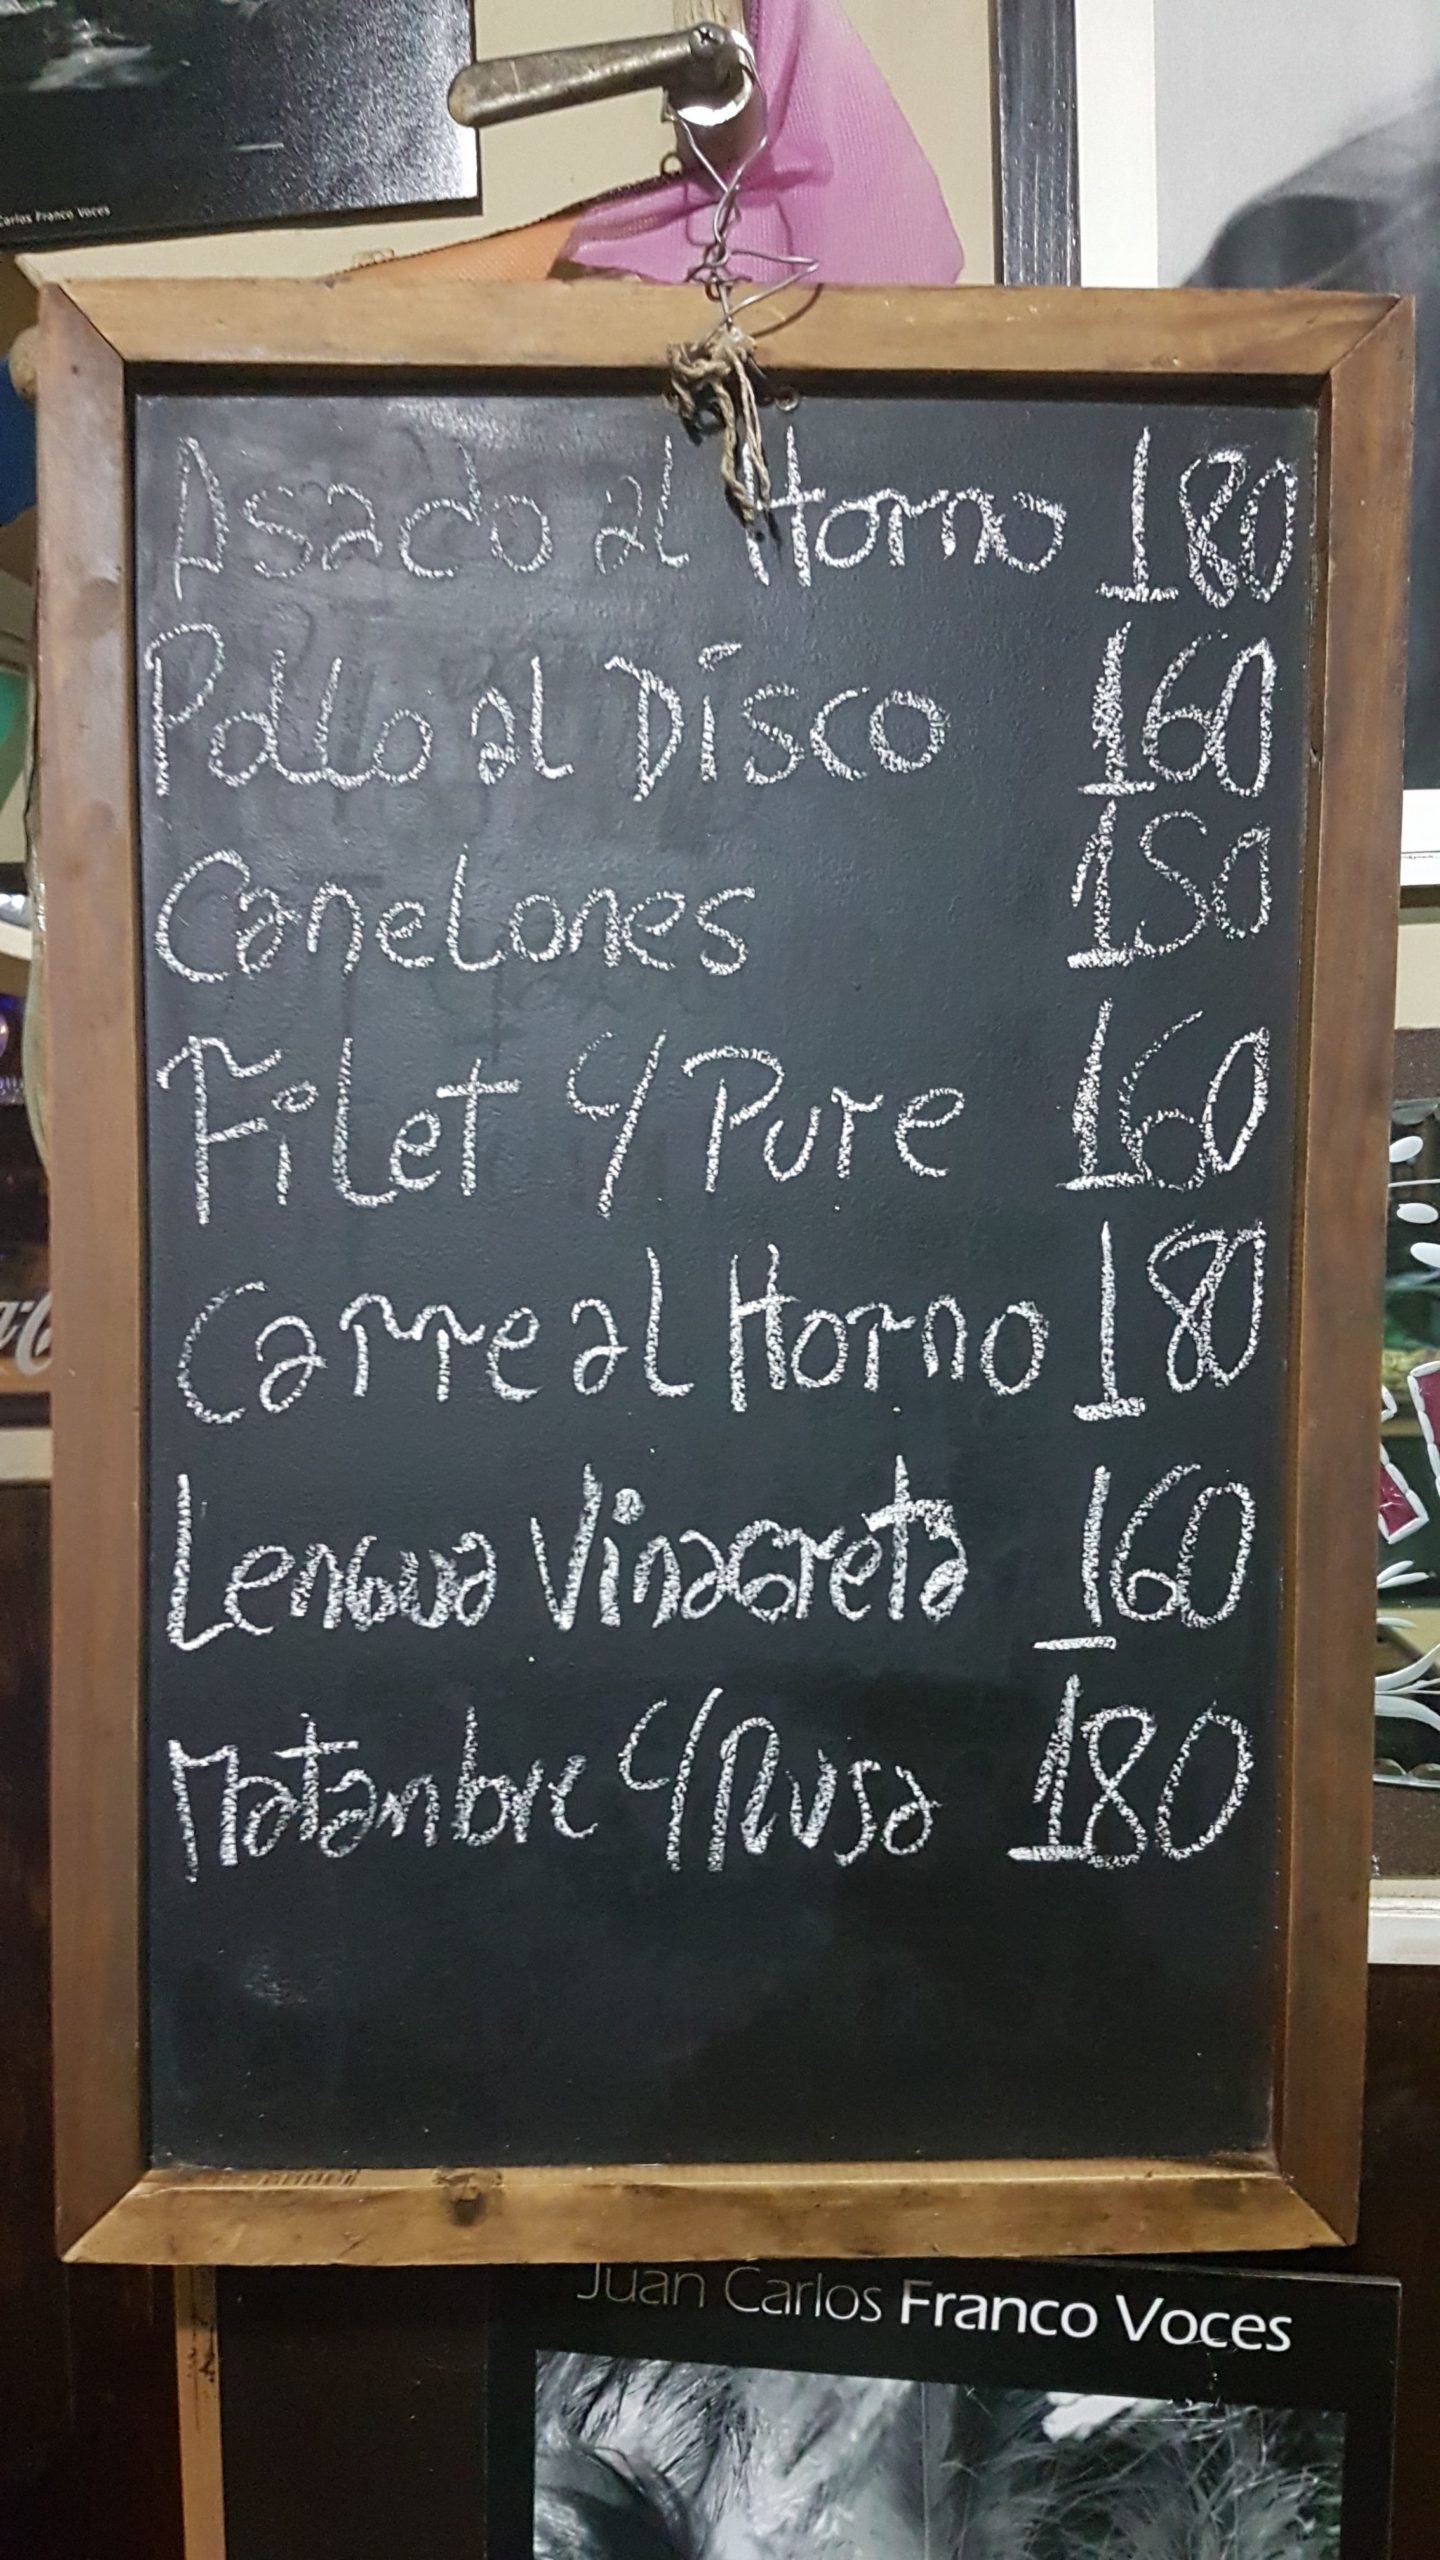 Carlos Franco Voces
Asado al Horno 180
Pollo al Disco 160
Canelones 150
Filet c/ Pure 160
Carre al Horno 180
Lengua Vinagreta 160
Matambre c/ Rusa 180
Juan Carlos Franco Voces